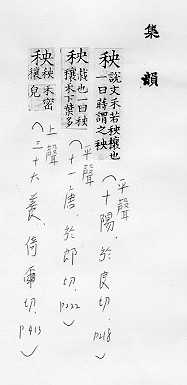 集韻
秧 說文禾若秧穰也一曰蒔謂之秧
︿平聲 十陽，於良切，p.218﹀
秧 蓺也一曰秧穰禾下葉多
︿平聲 十一唐，於郎切，p.222﹀
秧 秧穰禾密皃
︿上聲 三十六養，倚兩切，p.413﹀